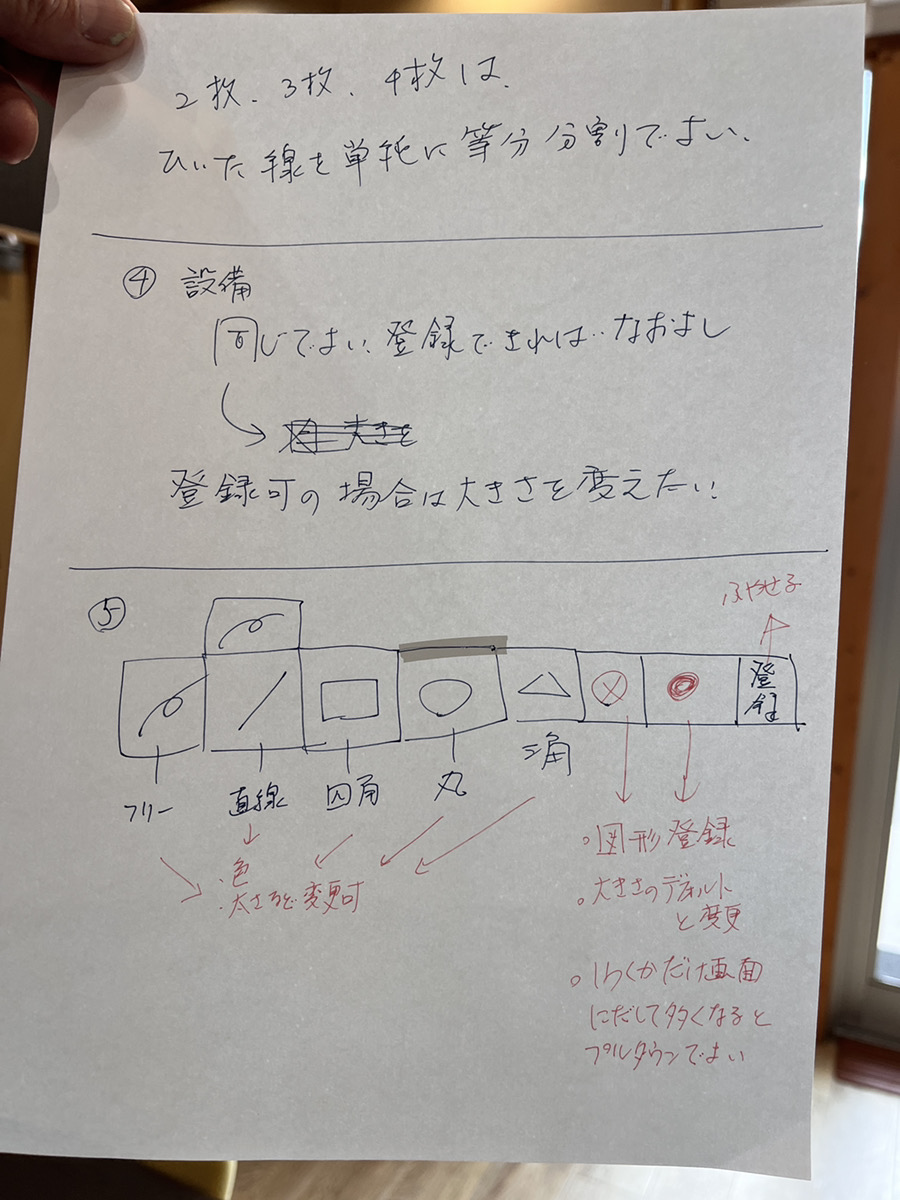 2枚、3枚、4枚は、
ひいた線を単純に等分分割でよい、
④ 設備
同じでよい、登録できれば、なおよし
大きさを
登録可の場合は大きさを変えたい
⑤
ふやせる
登録
フリー 直線 四角 丸 三角
・色
・太さなど変更可
・図形登録
・大きさのデフォルト
と変更
・いくつかだけ画面
にだして多くなると
プルダウンでよい